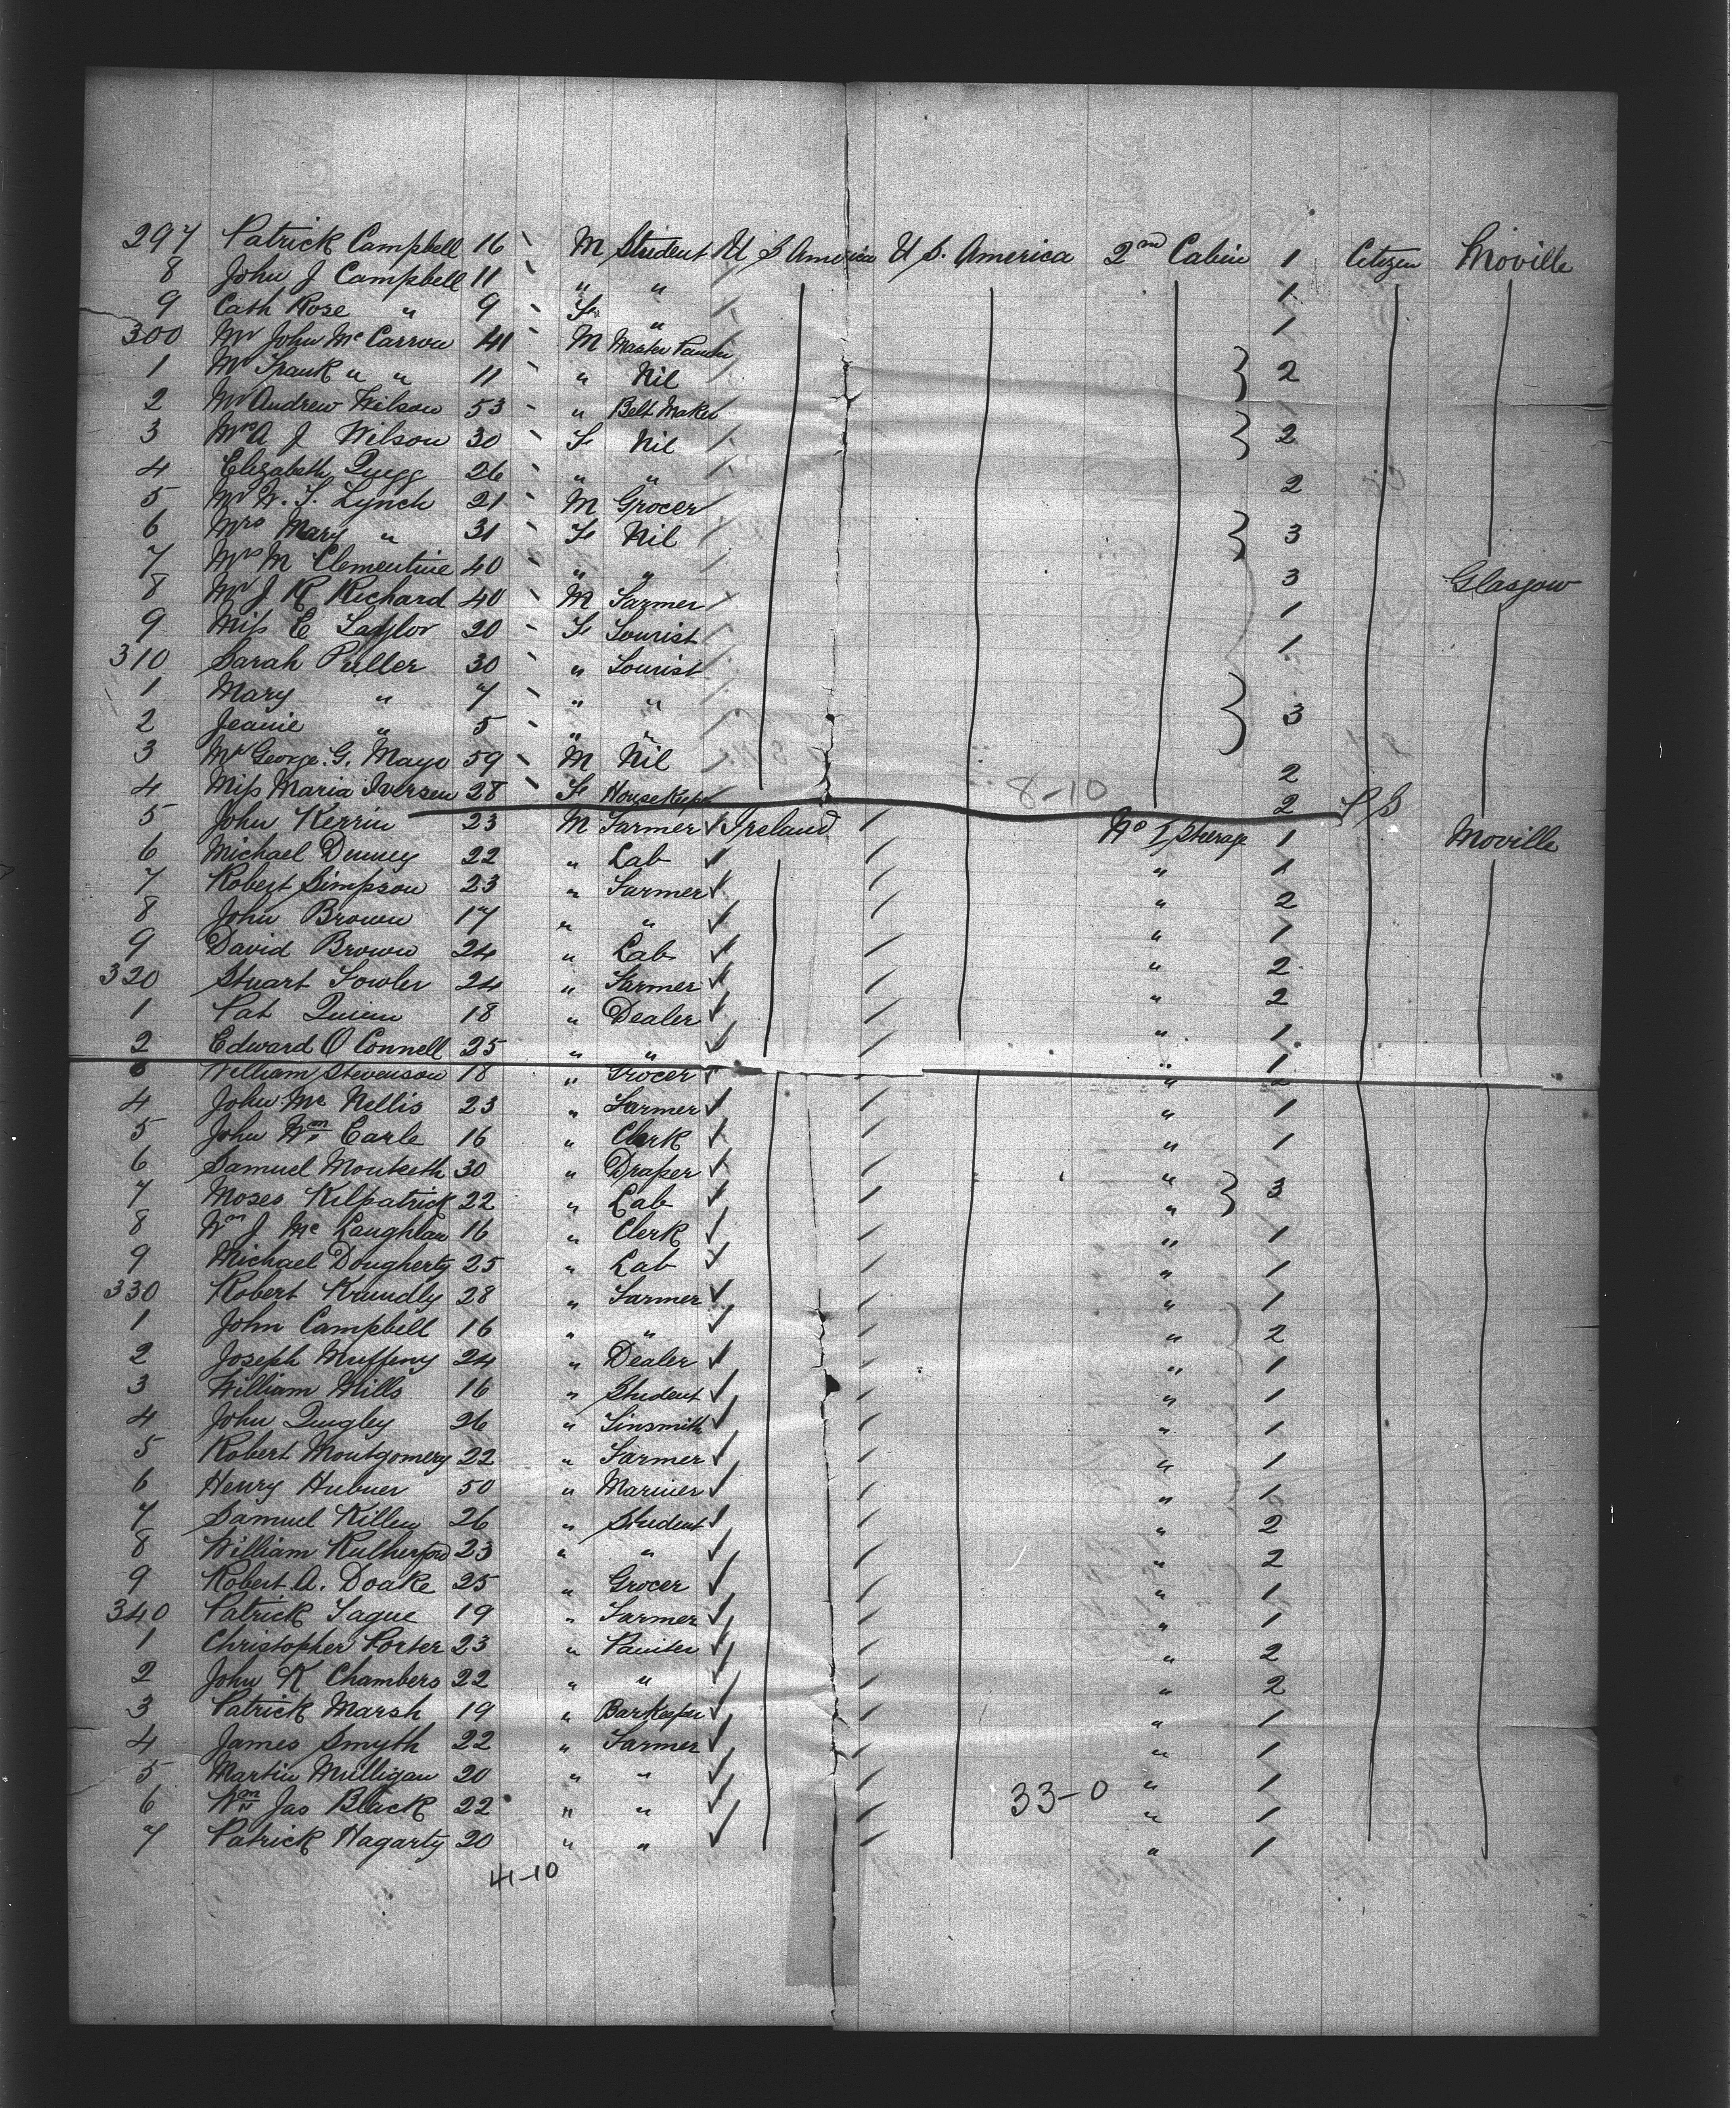 297 Patrick Campbell 16 M Student U S America U S. America 2nd Cabin 1 Citizen Moville
8 John J Campbell 11 " " 1
9 Cath Rose " 9 F " 1
300 Mr John Mc Carron 41 M Master
1 Mr Frank " " 11 " Nil 2
2 Mr Andrew Wilson 53 " Belt Maker
3 Mrs A J Wilson 30 F Nil 2
4 Elizabeth Quigg 26 " " 2
5 Mr W. F. Lynch 21 M Grocer
6 Mrs Mary " 31 F Nil 3
7 Mrs M Clementine 40 " " 3 Glasgow
8 Mr J R Richard 40 M Farmer 1
9 Miss E Taylor 20 F Tourist 1
310 Sarah Puller 30 " Tourist
1 Mary " 7 " "
2 Jeanie " 5 " " 3
3 Mr George. G. Mayo 59 M Nil 2
4 Miss Maria Iversen 28 F HouseKeeper 8-10 2
5 John Kerrin 23 M Farmer Ireland No 1 Steerage 1 Moville
6 Michael Denney 22 " Lab " 1
7 Robert Simpson 23 " Farmer " 2
8 John Brown 17 " " " 1
9 David Brown 24 " Lab " 2
320 Stuart Fowler 24 " Farmer " 2
1 Pat Quinn 18 " Dealer " 1
2 Edward O Connell 25 " " " 1
3 William Stevenson 18 " Grocer " 2
4 John Mc Nellis 23 " Farmer " 1
5 John Wm Earle 16 " Clerk " 1
6 Samuel Monteith 30 " Draper "
7 Moses Kilpatrick 22 " Lab " 3
8 Wm J Mc Laughlan 16 " Clerk " 1
9 Michael Dougherty 25 " Lab " 1
330 Robert Krundly 28 " Farmer " 1
1 John Campbell 16 " " " 2
2 Joseph 24 " Dealer " 1
3 William Mills 16 " Student " 1
4 John Quigley 26 " Tinsmith " 1
5 Robert Montgomery 22 " Farmer " 1
6 Henry Hubner 50 " Mariner " 1
7 Samuel Killen 26 " Student " 2
8 William Rutherford 23 " " " 2
9 Robert A. Doake 25 " Grocer " 1
340 Patrick Tague 19 " Farmer " 1
1 Christopher Porter 23 " Painter " 2
2 John K Chambers 22 " " " 2
3 Patrick Marsh 19 " Barkeeper " 1
4 James Smyth 22 " Farmer " 1
5 Martin Mulligan 20 " " " 1
6 Wm Jas Black 22 " " 33-0 " 1
7 Patrick Hagarty 20 " " " 1
41-10